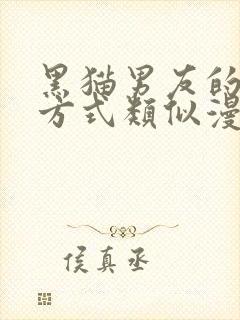 黑猫男友的
方式類似漫
侯真丞